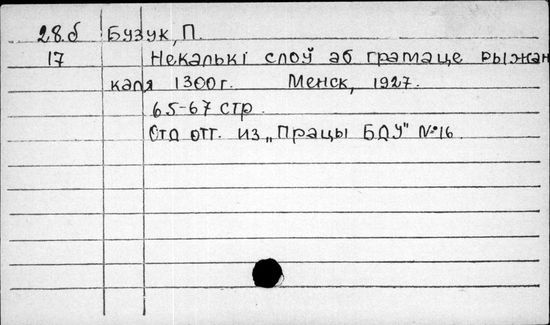 28.б Бузук, П.
17 Некалькі слоў аб грамаце рыжан
каля 1300 г. Менск, 1927.
65-67 стр.
Отд отт. из „Працы БДУ" №16.